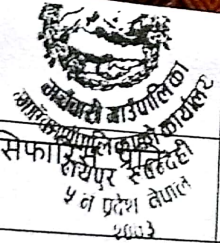 मर्चवारी गाउँपालिका
गाउँ कार्यपालिकाको कार्यालय
सिफारिस
रायपुर रुपन्देही
५ नं प्रदेश नेपाल
२०७३